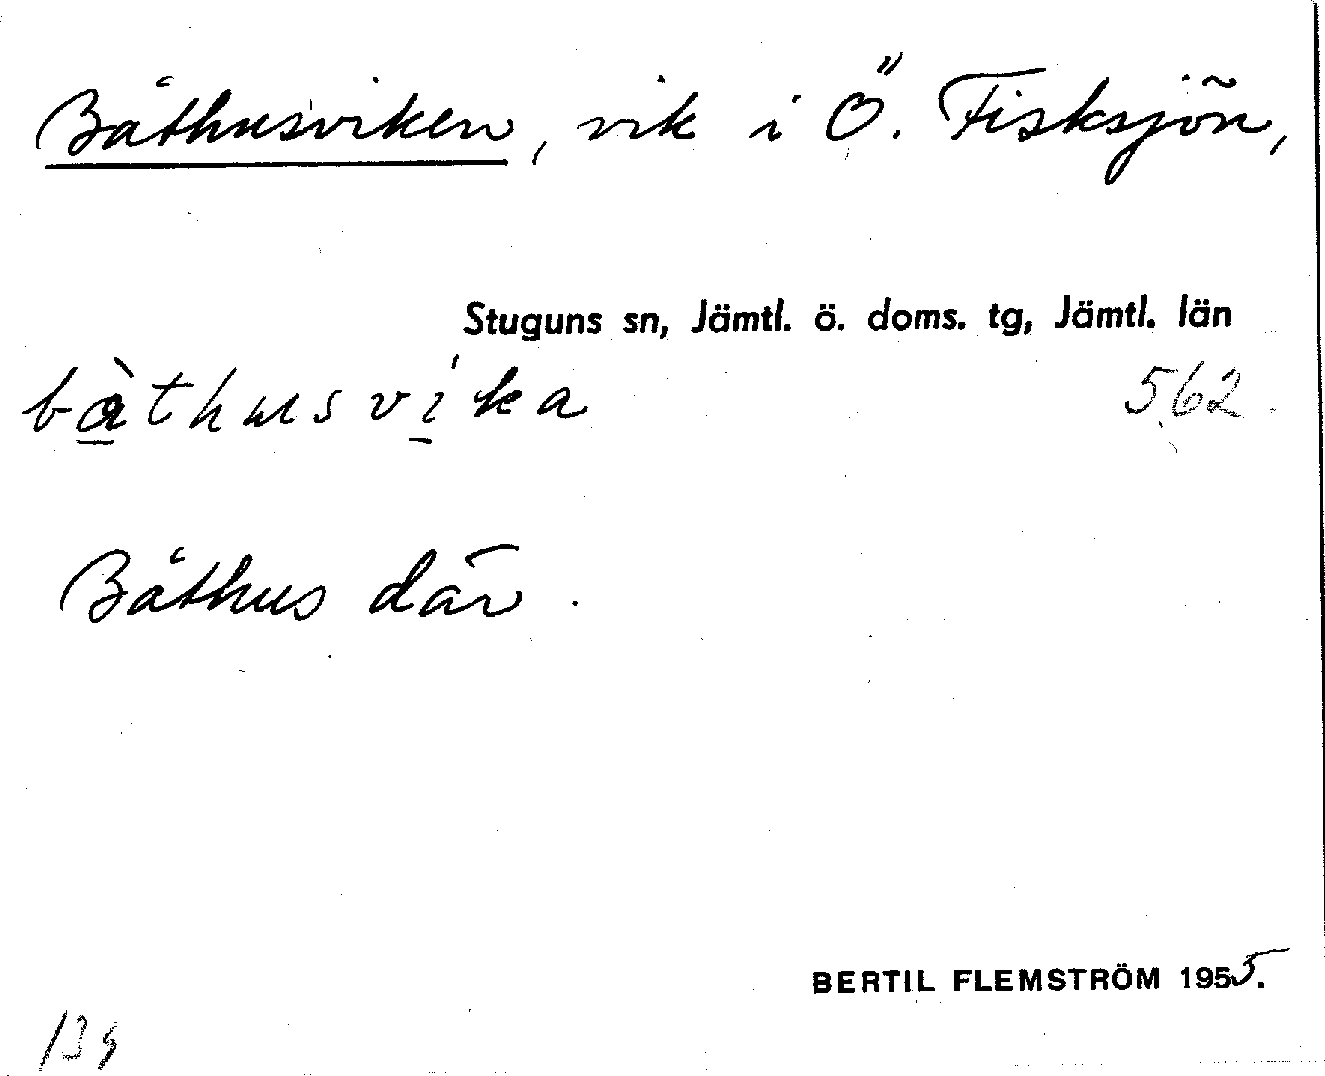 Båthusviken, vik i Ö. Fisksjön,
Stuguns sn, Jämtl. ö. doms. tg, Jämtl. län
bå̀thusvi̍ka 562
Båthus där.
BERTIL FLEMSTRÖM 1955.